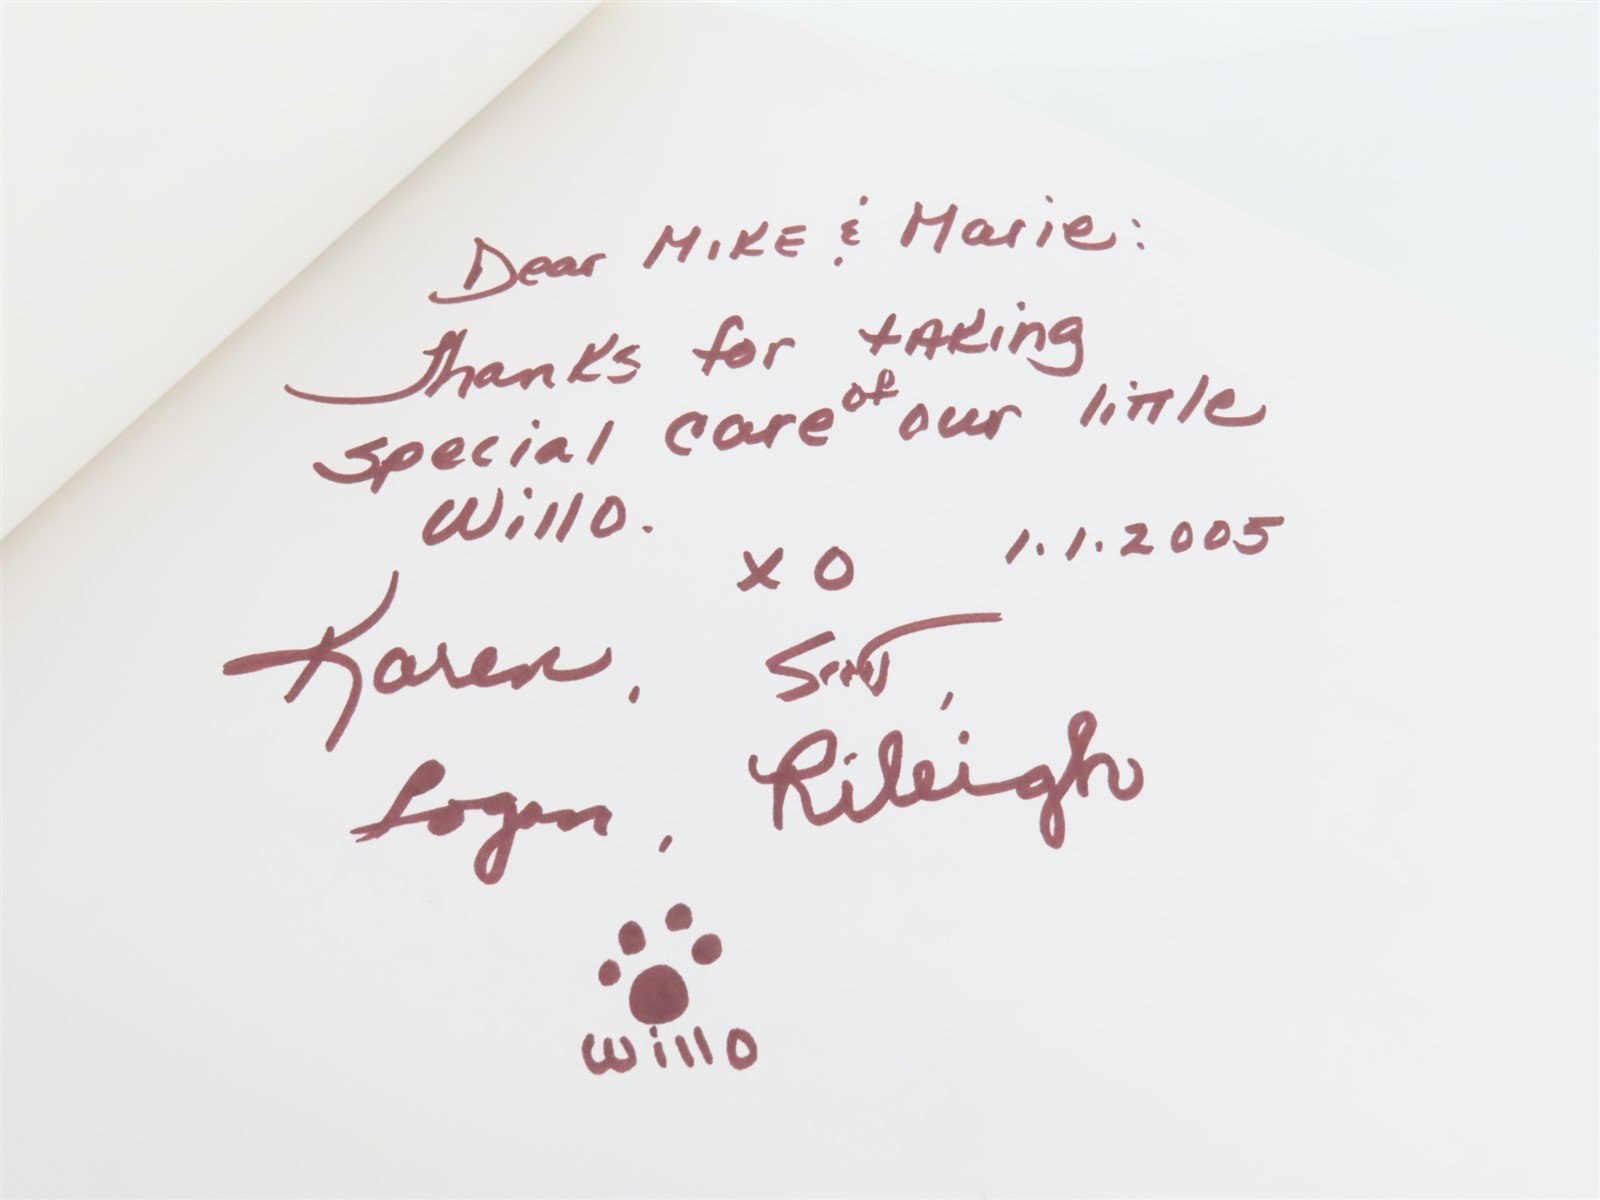 Dear MIKE & Marie:
Thanks for tAKing
special care of our little
Willo.
XO 1.1.2005
Karen, Scott,
Logan, Rileigh
Willo